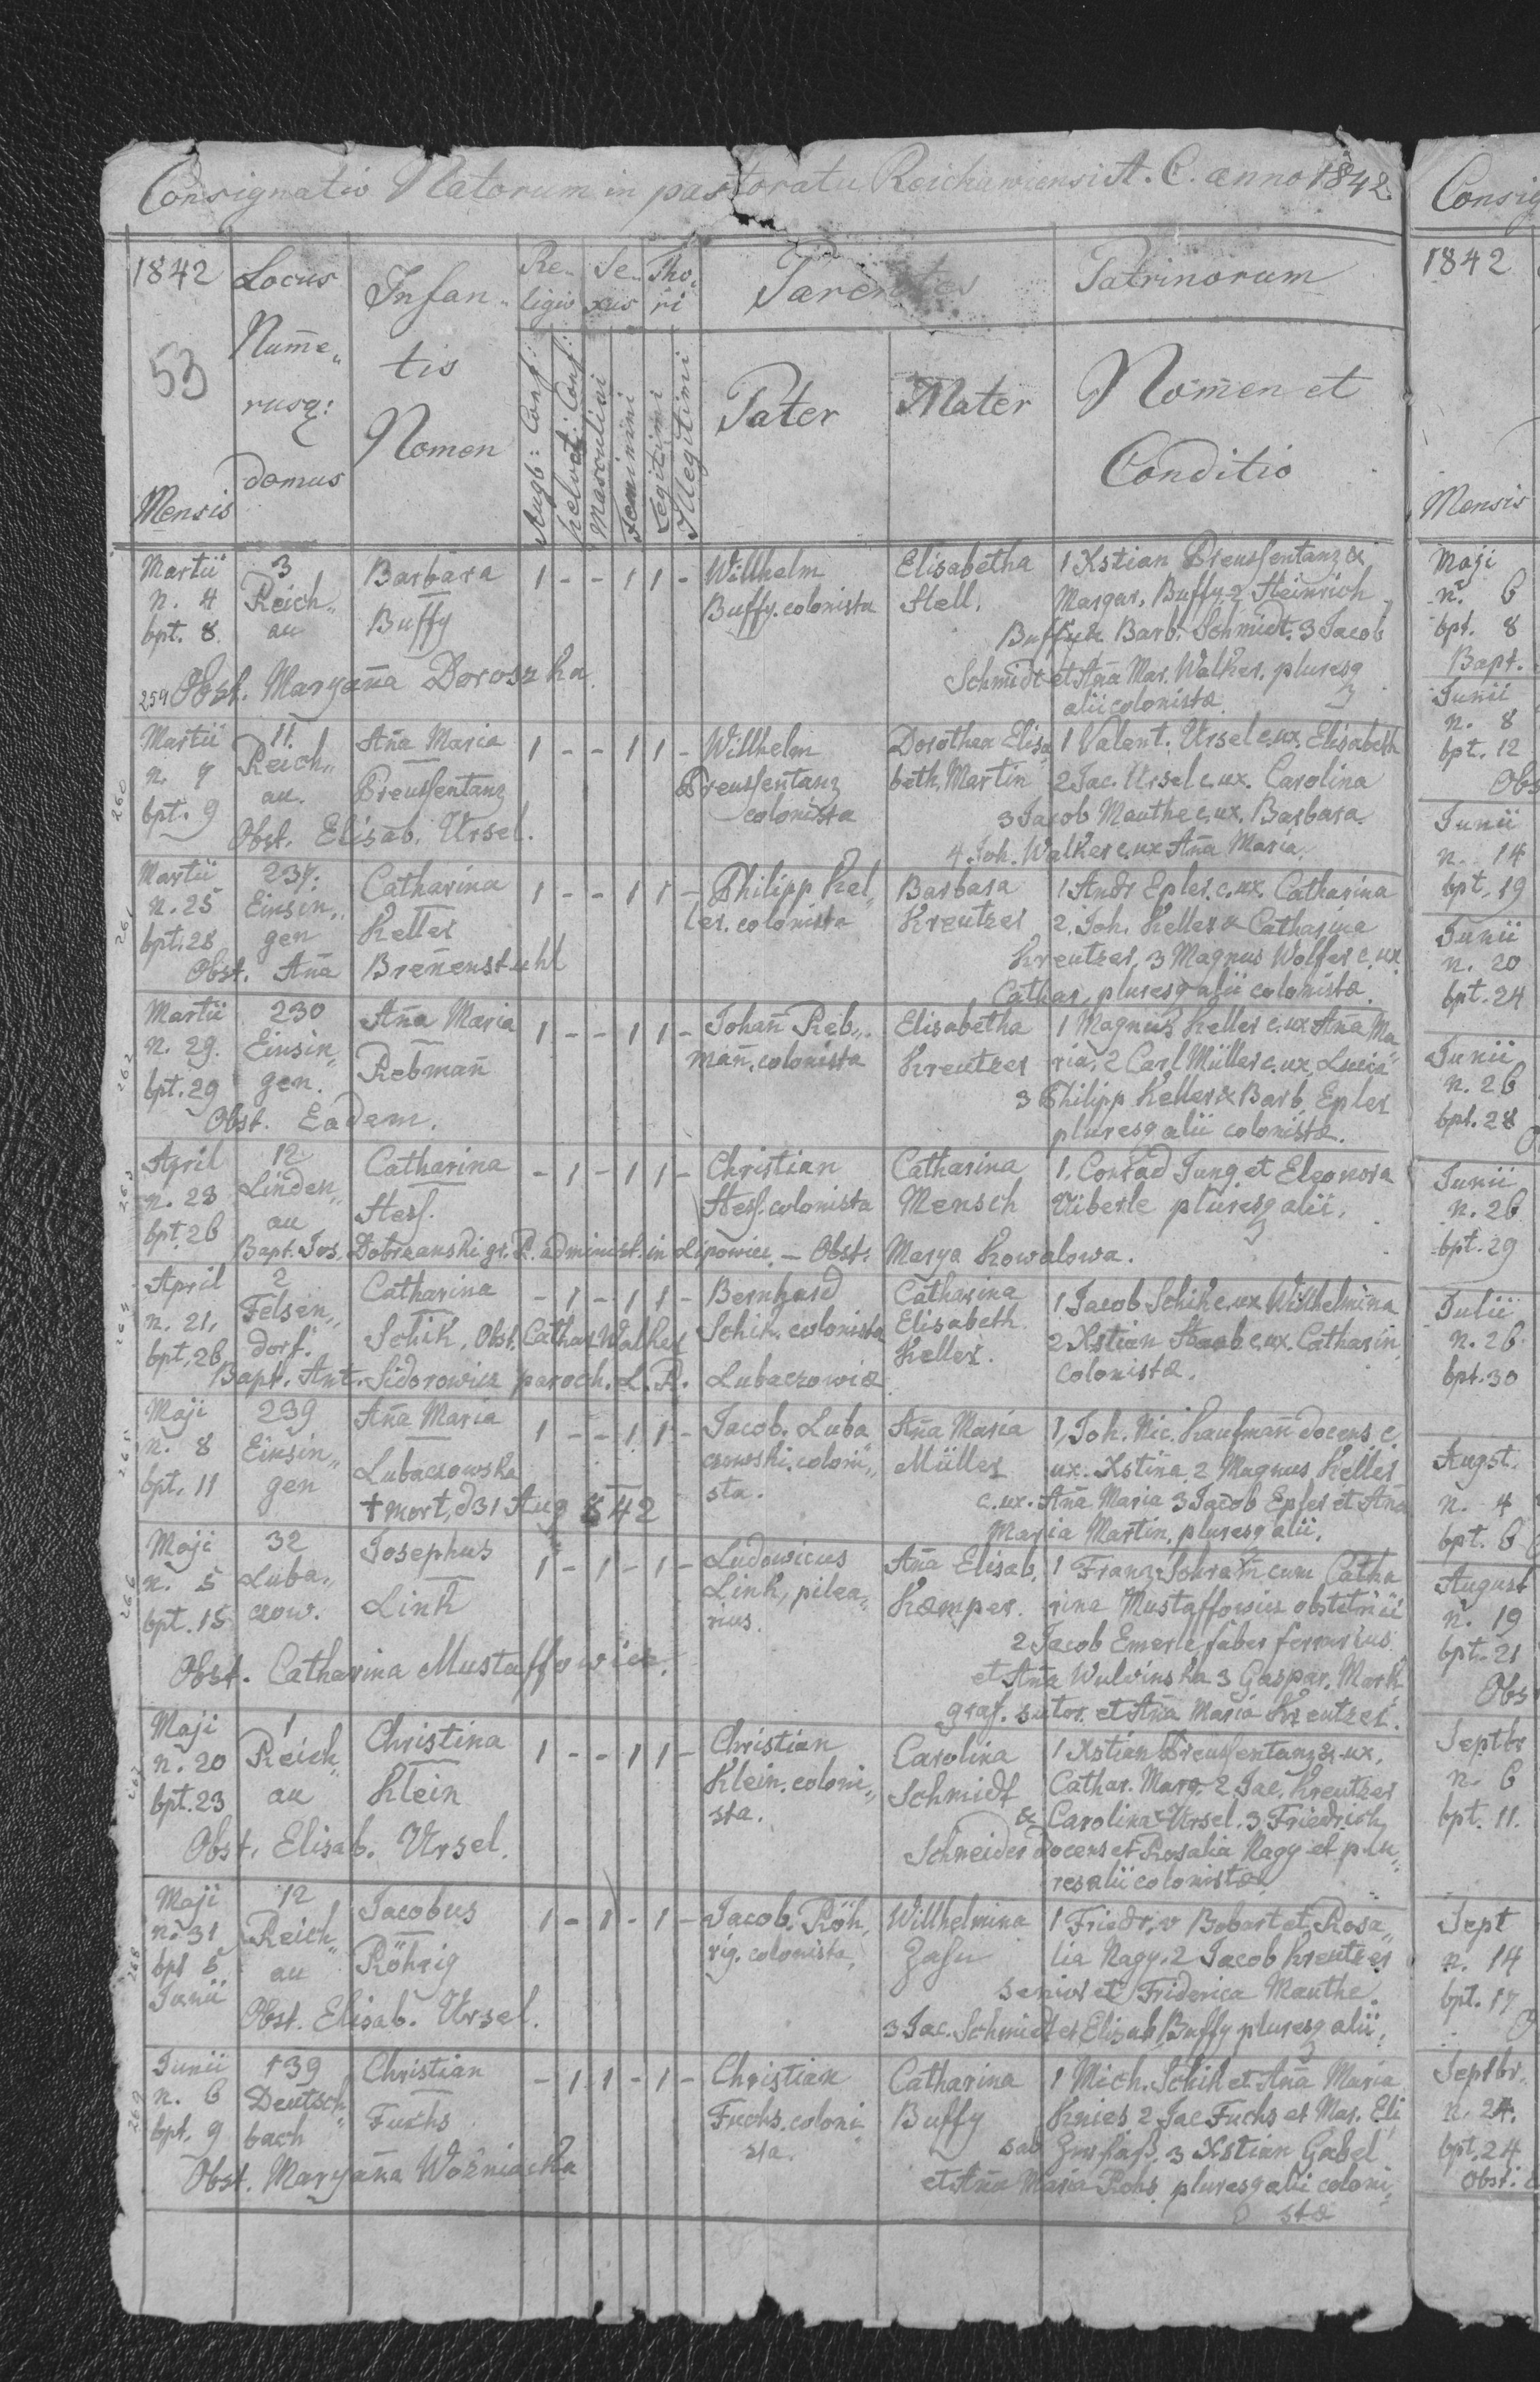 Consignatio Natorum in pastoratu Reichawiensi A. C. anno 1842.
1842
Locus
Nume„
rusq:
domus
53
Mensis
Infan„
tis
Nomen
Re„
ligio
Se„
xus
Tho„
ri
Augb: Conf:
helvet: Conf:
Masculini
Feminini
Legitimi
Illegitimi
Parentes
Pater
Mater
Patrinorum
Nomen et
Conditio
Martii 3 Barbara 1 - - 1 1 - Willhelm Elisabetha 1 Xstian Preussentanz &
n. 4 Reich„ Buffy. colonista Stell. Margar. Buffy 2 Heinrich
bpt. 8. au Buffy Buffy & Barb. Schmidt. 3 Jacob
259 Obst. Maryaña Doroszka Schmidt et Aña Mar. Walker. pluresq
alii colonistæ.
Martii 11. Aña Maria 1 - - 1 1 - Willhelm Dorothea Elisa 1 Valent. Ursel c. ux. Elisabeth
n. 7 Reich„ Preussentanz beth. Martin 2 Jac. Ursel c. ux. Carolina
260 bpt. 9 au. Preussentanz colonista 3 Jacob Mauthe c. ux. Barbara
Obst. Elisab. Ursel. 4 Joh. Walker c. ux Aña Maria.
Martii 237. Catharina 1 - - 1 1 - Philipp Kel„ Barbara 1 Andr Epler. c. ux. Catharina
n. 25 Einsin„ ler. colonista Kreutzer 2. Joh. Keller & Catharina
261 bpt. 28 gen Keller Kreutzer, 3 Magnus Wolfer c. ux
Obst. Aña Breñenstuhl Cathar, pluresq alii colonistæ.
Martii 230 Aña Maria 1 - - 1 1 - Johañ Reb„ Elisabetha 1 Magnus Keller c. ux Aña Ma„
n. 29. Einsin„ mañ. colonista Kreutzer ria, 2 Carl Müller c. ux. Lucia
262 bpt. 29 gen. Rebmañ 3 Philipp Keller & Barb. Epler
Obst. Eadem. pluresq alii colonistæ.
April 12 Catharina - 1 - 1 1 - Christian Catharina 1. Conrad Jung et Eleonora
263 n. 23 Linden„ Hess. Hess. colonista Mensch Viberle pluresq alii.
bpt. 26 au
Bapt. Jos. Dobrzanski gr. R. administ. in Lipowiec. — Obst. Marya Kowalowa.
April 2 Catharina - 1 - 1 1 - Bernhard Catharina 1 Jacob Schik c. ux Willhelmina
n. 21. Felsen„ Schik. colonista Elisabeth 2 Xstian Staab c. ux. Catharin,
bpt. 26 dorf. Schik. Obst. Cathar Walker Keller. Colonistæ.
Bapt. Ant. Sidorowicz paroch. L. R. Lubaczowiæ
Maji 239 Aña Maria 1 - - 1 1 - Jacob. Luba Aña Maria 1, Joh. Nic. Kaufmañ docens. c.
n. 8 Einsin„ czowski. coloni„ Müller ux. Xstina, 2 Magnus Keller
bpt. 11 gen Lubaczowska sta. c. ux. Aña Maria 3 Jacob Epler et Aña
† mort, d 31 Aug 842 Maria Martin, pluresq alii.
Maji 32 Josephus 1 - 1 - 1 - Ludowicus Aña Elisab. 1 Franz cum Catha
266 n. 5 Luba„ Linh, pilea„ Kæmper. rina Mustaffowicz obstetricii
bpt. 15 czow. Linh rius. 2 Jacob Emerle faber ferrarius
Obst. Catharina Mustaffowicz. et Aña Wulvinska 3 Gaspar. Mark
graf. sutor. et Aña Maria Kreutzer.
Maji 1 Christina 1 - - 1 1 - Christian Carolina 1 Xstian Preussentanz c. ux.
267 n. 20 Reich„ Klein. coloni„ Schmidt Cathar. Marg. 2 Jac. Kreutzer
bpt. 23 au Klein sta. & Carolina Ursel. 3 Friedrich
Obst. Elisab. Ursel. Schneider docens et Rosalia Nagy et plu„
res alii colonistæ
Maji 12 Jacobus 1 - 1 - 1 - Jacob. Röh„ Willhelmina 1 Friedr. v Bobart et Rosa„
n. 31 Reich„ rig. colonista. Zahn lia Nagy. 2 Jacob Kreutzer
268 bpt 5 au Röhrig senior et Friderica Mauthe.
Junii Obst. Elisab. Ursel. 3 Jac. Schmidt et Elisab Buffy pluresq alii.
Junii 139 Christian - 1 1 - 1 - Christian Catharina 1 Mich. Schik et Aña Maria
269 n. 6 Deutsch„ Fuchs. coloni„ Buffy Knies 2 Jac Fuchs et Mar. Eli
bpt. 9 bach Fuchs sta. sab 3 Xstian Gabel
Obst. Maryaña Woźniacka et Aña Maria Rohs. pluresq alii coloni„
stæ
Consig
1842
Mensis
Maji
n. 6
bpt. 8
Bapt.
Junii
n. 8
bpt. 12
Obs
Junii
n. 14
bpt. 19
Junii
n. 20
bpt. 24
Junii
n. 26
bpt. 28
Junii
n. 26
bpt. 29
Julii
n. 26
bpt. 30
Augst.
n. 4
bpt. 6
August
n. 19
bpt. 21
Obs
Septbr
n. 6
bpt. 11.
Sept
n. 14
bpt. 17
Septbr.
n. 24.
bpt. 24
Obst.